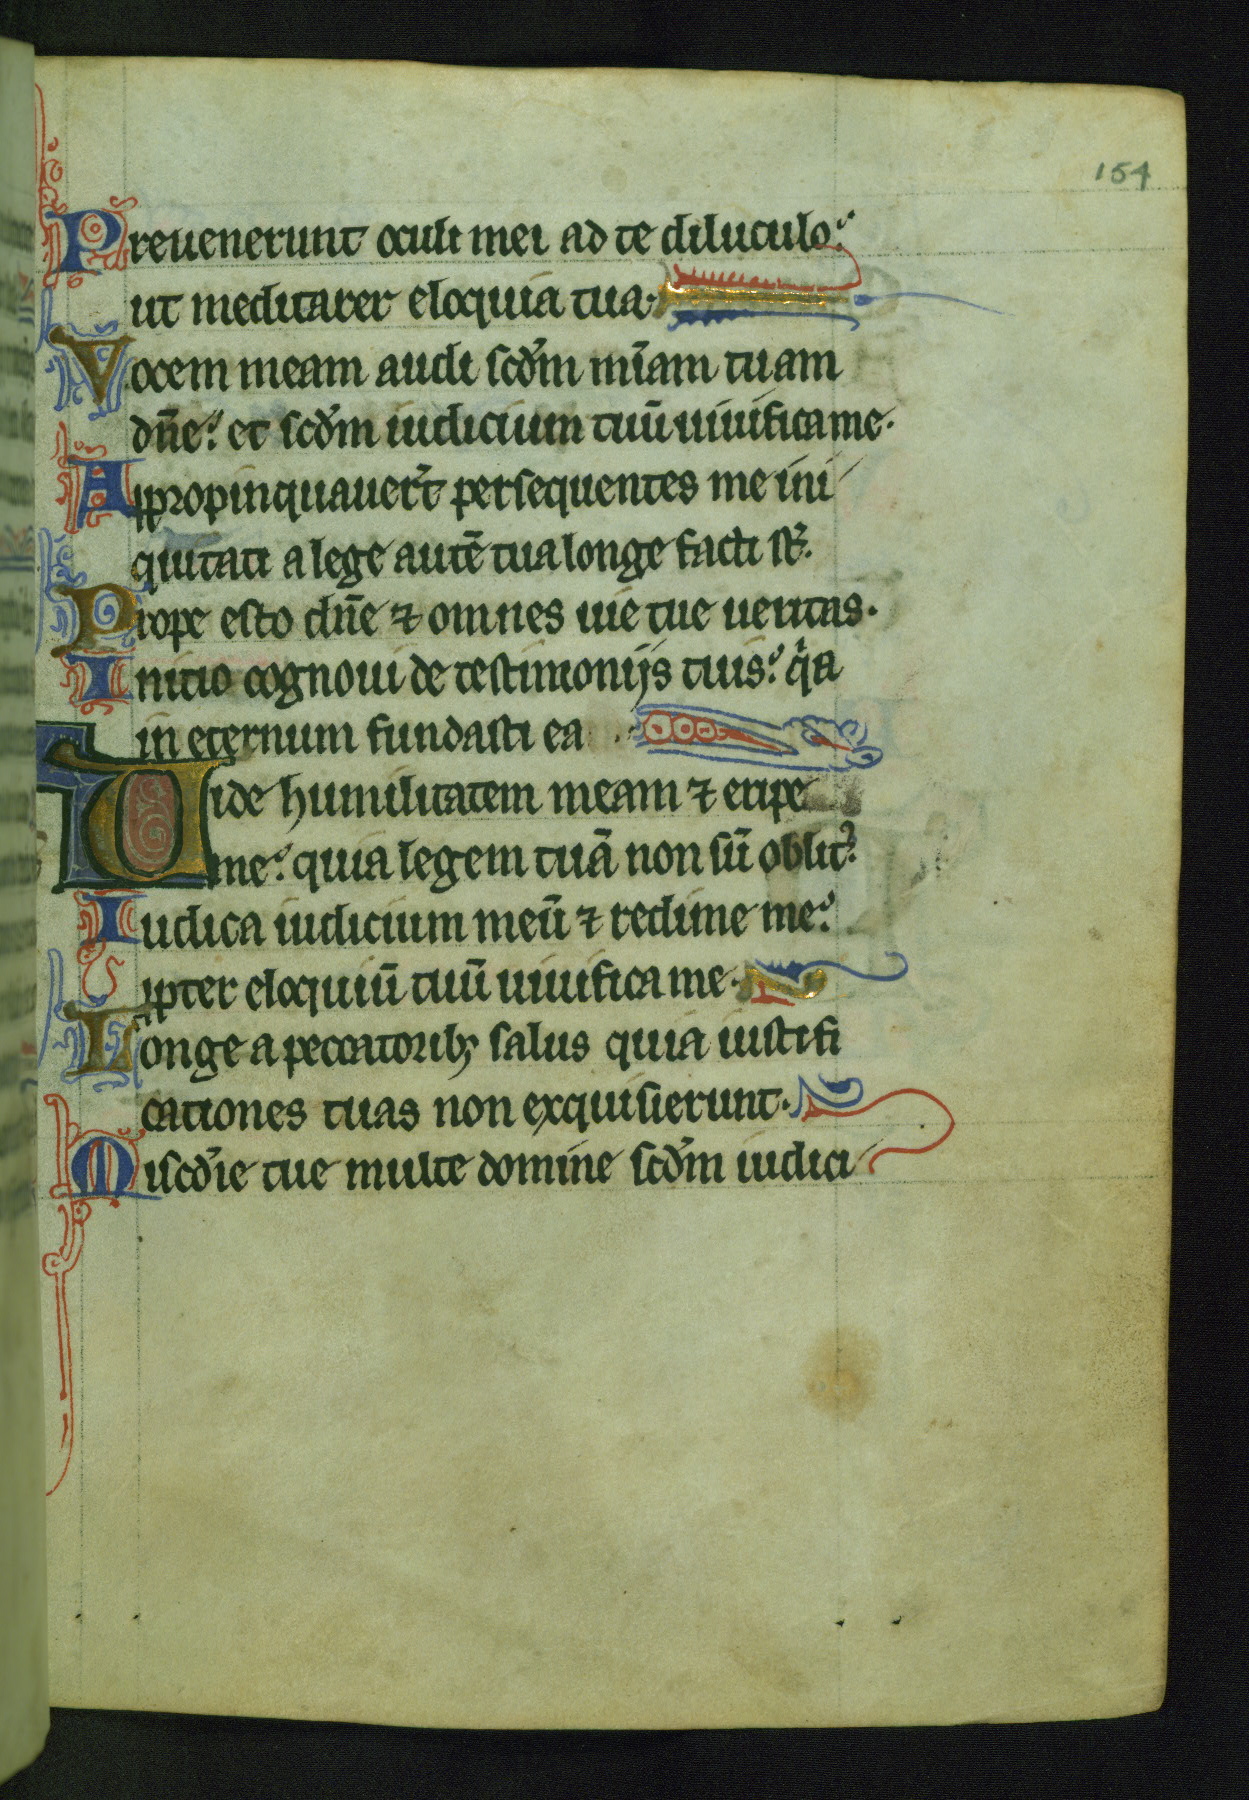 154
Preuenerunt oculi mei ad te diluculo:
ut meditarer eloquia tua.
Vocem meam audi scd̄m m̄iam tuam
dn̄e: et scd̄m iudicium tuū uiuifica me.
Appropinquauer̄t persequentes me ini
quitati a lege autē tua longe facti st̄.
Prope esto dn̄e ⁊ omnes uie tue ueritas.
Initio cognoui de testimonijs tuis: qͥa
in eternum fundasti ea.
Uide humilitatem meam ⁊ eripe
me: quia legem tuā non sū oblitꝰ.
Iudica iudicium meū ⁊ redime me:
ꝓpter eloquiū tuū uiuifica me.
Longe a peccatoribꝫ salus quia iustifi
cationes tuas non exquisierunt.
Miscd̄ie tue multe domine scd̄m iudici